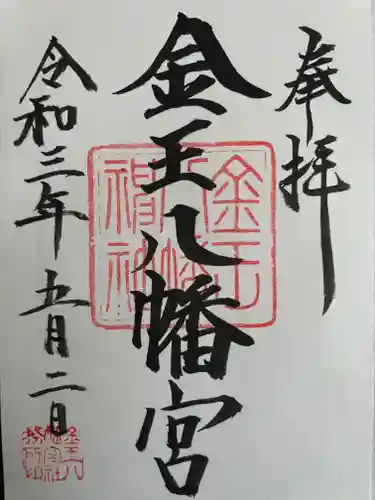 奉拝
金王八幡宮
令和三年五月二日
金王
八幡
神社
金王八
幡宮社
務所印